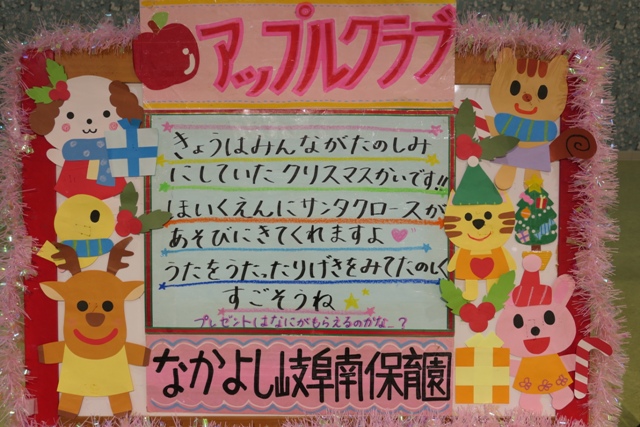 アップルクラブ
きょうはみんながたのしみ
にしていたクリスマスかいです!!
ほいくえんにサンタクロースが
あそびにきてくれますよ
うたをうたったりげきをみてたのしく
すごそうね
プレゼントはなにがもらえるのかな…?
なかよし岐阜南保育園